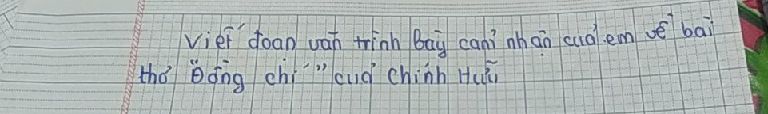 Viết đoạn văn trình bày cảm nhận của em về bài
thơ "Đồng chí" của Chính Hữu